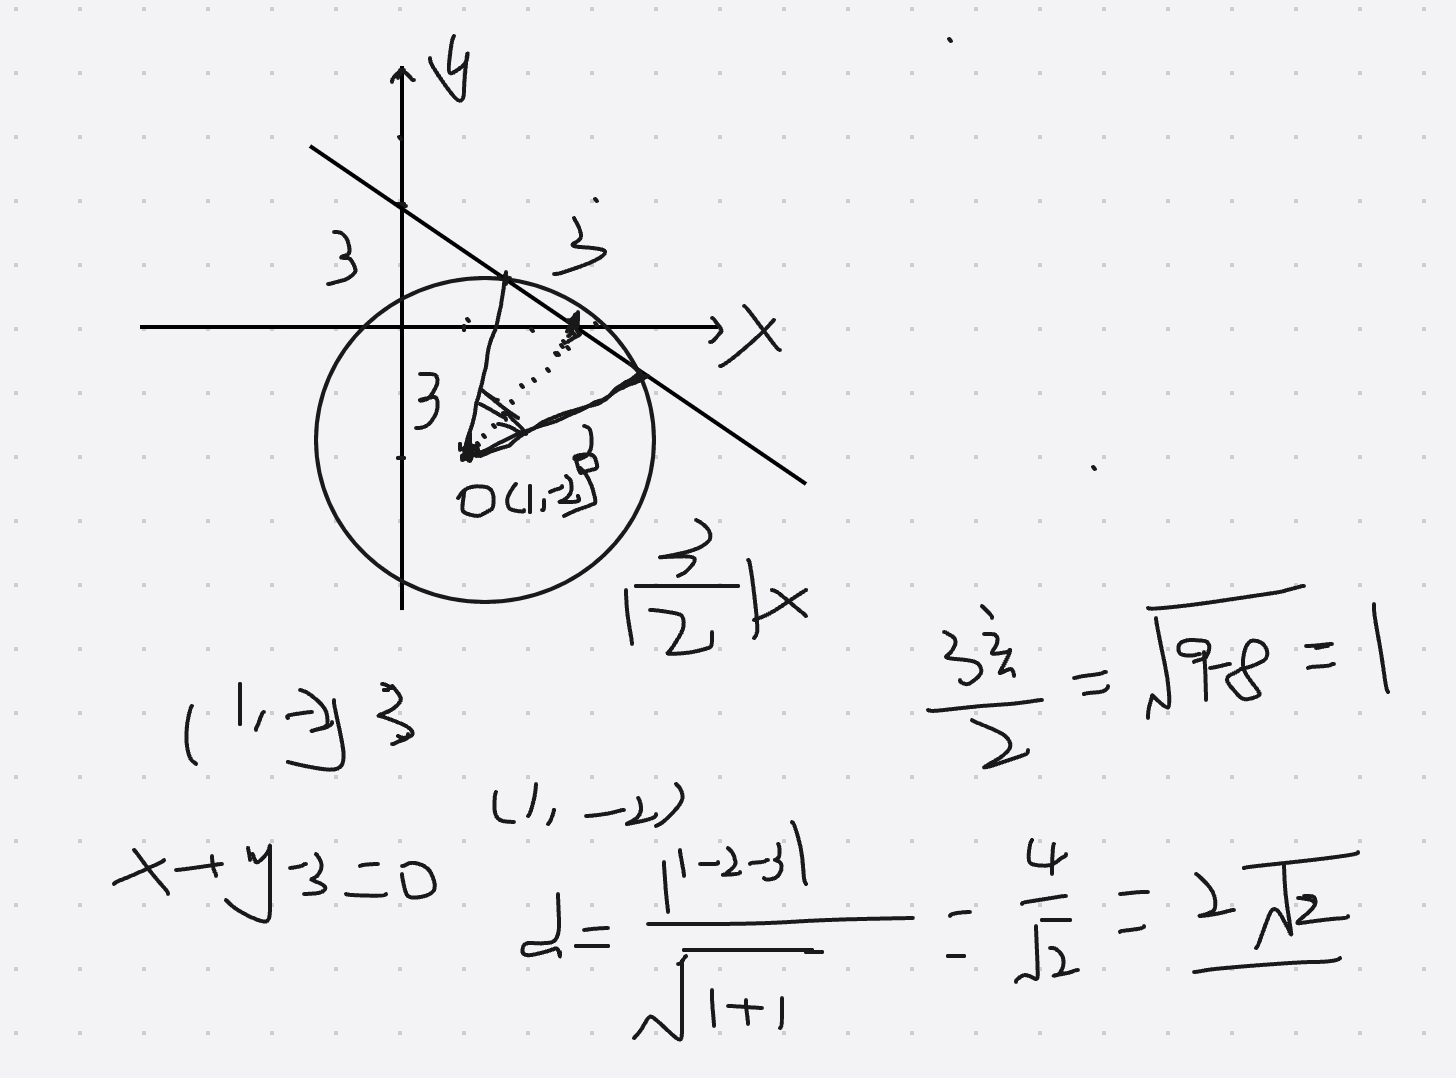 y
3
3
x
3
3
O(1,-2)
|3/2|x
(1,-2) 3
3
2
= √9-8 = 1
(1, -2)
x+y-3=0
d = |1-2-3| / √1+1 = 4/√2 = 2√2